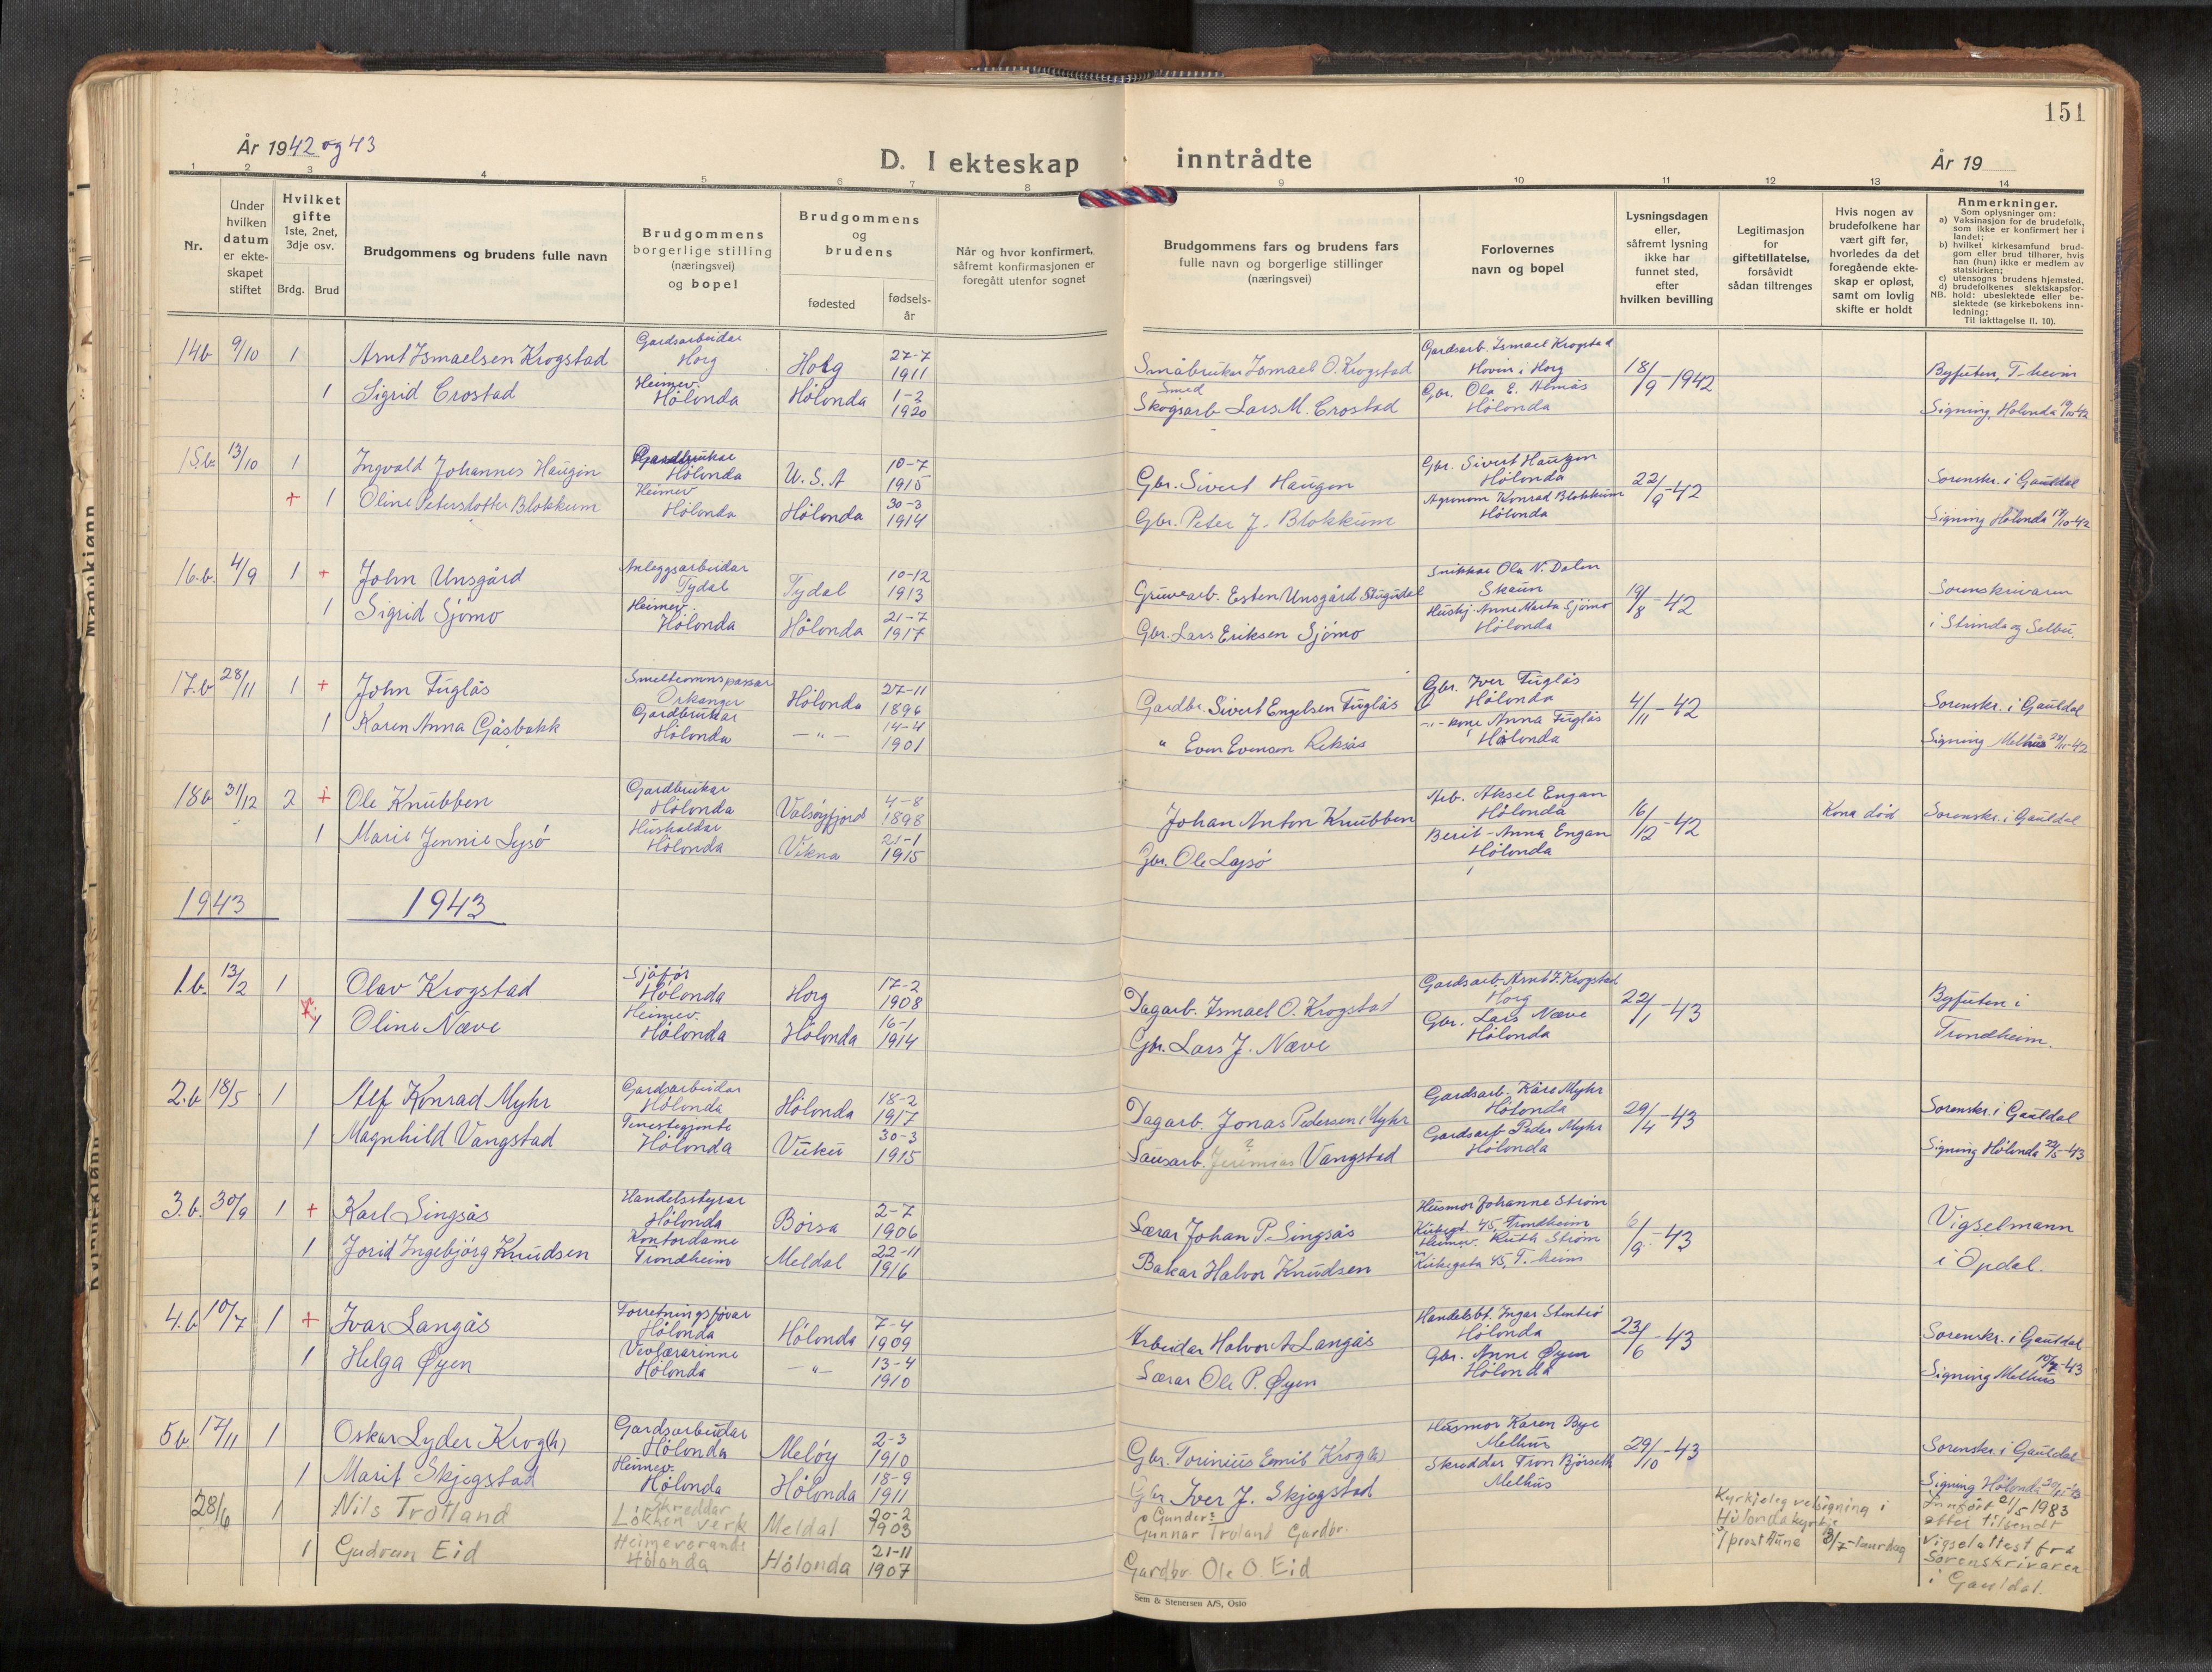 151
År 1942 og 43
D. I ekteskap inntrådte
År 19
1 2 3 4 5 6 7 8 9 10 11 12 13 14
Nr.
Under hvilken datum er ekte-skapet stiftet
Hvilket gifte 1ste, 2net, 3dje osv.
Brdg. Brud
Brudgommens og brudens fulle navn
Brudgommens borgerlige stilling (næringsvei) og bopel
Brudgommens og brudens
fødested
fødsels-år
Når og hvor konfirmert, såfremt konfirmasjonen er foregått utenfor sognet
Brudgommens fars og brudens fars fulle navn og borgerlige stillinger (næringsvei)
Forlovernes navn og bopel
Lysningsdagen eller, såfremt lysning ikke har funnet sted, efter hvilken bevilling
Legitimasjon for giftetillatelse, forsåvidt sådan tiltrenges
Hvis nogen av brudefolkene har vært gift før, hvorledes da det foregående ekte-skap er opløst, samt om lovlig skifte er holdt
Anmerkninger.
Som oplysninger om:
a) Vaksinasjon for de brudefolk, som ikke er konfirmert her i landet;
b) hvilket kirkesamfund brud-gom eller brud tilhører, hvis han (hun) ikke er medlem av statskirken;
c) utensogns brudens hjemsted.
d) brudefolkenes slektskapsfor-hold: ubeslektede eller be-slektede (se kirkebokens inn-ledning;
NB. Til iakttagelse II. 10).
14b 9/10 1 Arnt Ismaelsen Krogstad Gardsarbeidar Horg Horg 27-7 1911 Småbruker Ismael O. Krogstad Gardsarb. Ismael Krogstad Hovin i Horg 18/9-1942 Byfuten, T-heim
1 Sigrid Crostad Heimev. Hølonda Hølonda 1-2 1920 Smed Skogsarb Lars M. Crostad Gbr. Ola E. Almås Hølonda Signing, Hølonda 19/10-42
15.b. 13/10 1 Ingvald Johannes Haugen Gardbrukar Hølonda U.S.A 10-7 1915 Gbr. Sivert Haugen Gbr. Sivert Haugen Hølonda 22/9-42 Sorenskr. i Gauldal
+ 1 Oline Petersdotter Blokkum Heimev Hølonda Hølonda 30-3 1914 Gbr. Peter J. Blokkum Agronom Konrad Blokkum Hølonda Signing Hølonda 17/10-42
16.b. 4/9 1 + John Unsgård Anleggsarbeidar Tydal Tydal 10-12 1913 Gruvearb. Esten Unsgård Stugudal Snikkar Ola N. Dalen Skaun 19/8-42 Sorenskrivaren
1 Sigrid Sjømo Heimev. Hølonda Hølonda 21-7 1917 Gbr. Lars Eriksen Sjømo Huskj. Anne Marta Sjømo Hølonda i Strinda og Selbu.
17.b 28/11 1 + John Fuglås Smelteomnspassar Orkanger Hølonda 27-11 1896 Gardbr. Sivert Engelsen Fuglås Gbr. Iver Fuglås Hølonda 4/11-42 Sorenskr. i Gauldal
1 Karen Anna Gåsbakk Gardbrukar Hølonda -"- 14-4 1901 " Even Evensen Reksås -"- kone Anna Fuglås Hølonda Signing Melhus 29/11-42
18b 31/12 2 + Ole Knubben Gardbrukar Hølonda Valsøyfjord 4-8 1898 Johan Anton Knubben Arb. Aksel Engan Hølonda 16/12-42 Kona død Sorenskr. i Gauldal
1 Marie Jennie Lysø Hushaldar Hølonda Vikna 21-1 1915 Gbr. Ole Lysø Berit-Anna Engan Hølonda
1943 1943
1.b. 13/2 1 Olav Krogstad Sjåfør Hølonda Horg 17-2 1908 Dagarb. Ismael O. Krogstad Gardsarb. Arnt I. Krogstad Horg 22/1-43 Byfuten i
1 Oline Næve Heimev. Hølonda Hølonda 16-1 1914 Gbr. Lars J. Næve Gbr. Lars Næve Hølonda Trondheim.
2.b 18/5 1 Alf Konrad Myhr Gardsarbeidar Hølonda Hølonda 18-2 1917 Dagarb. Jonas Pedersen Myhr Gardsarb. Kåre Myhr Hølonda 29/4-43 Sorenskr. i Gauldal
1 Magnhild Vangstad Tenestegjente Hølonda Vuku 30-3 1915 Sausarb. Jeremias ? Vangstad Gardsarb Peder Myhr Hølonda Signing Hølonda 22/5-43
3.b. 30/9 1 + Karl Singsås Handelsstyrar Hølonda Børsa 2-7 1906 Lærar Johan P. Singsås Husmor Johanne Strøm Kirkegt. 45, Trondheim 6/9-43 Vigselmann
1 Jorid Ingebjørg Knudsen Kontordame Trondheim Meldal 22-11 1916 Bakar Halvor Knudsen Heimev. Ruth Strøm Kirkegata 45, T.heim i Opdal.
4.b 10/7 1 + Ivar Langås Forretningsførar Hølonda Hølonda 7-4 1909 Arbeidar Halvor A Langås Handelsbt. Ingar Stentrø Hølonda 23/6-43 Sorenskr. i Gauldal
1 Helga Øyen Vevlærarinne Hølonda -"- 13-4 1910 Lærar Ole P. Øyen Gbr. Anne Øyen Hølonda Signing Melhus 10/7-43
5b 17/11 1 Oskar Lyder Krog(h) Gardsarbeidar Hølonda Meløy 2-3 1910 Gbr. Torinius Emil Krog(h) Husmor Karen Bye Melhus 29/10-43 Sorenskr. i Gauldal
1 Marit Skjegstad Heimev. Hølonda Hølonda 18-9 1911 Gbr Iver J. Skjegstad Skreddar Tron Bjørseth Melhus Signing Hølonda
28/6 1 Nils Trotland Skreddar Løkken verk Meldal 20-2 1903 Gunder? Gunnar Troland Gardbr. Kyrkjeleg velsigning i Hølonda kyrkje v/prost Aune 3/7-laurdag Innført 21/5 1983 etter tilsendt
1 Gudrun Eid Heimeverande Hølonda Hølonda 21-11 1907 Gardbr. Ole O. Eid Vigselattest frå Sorenskrivaren i Gauldal.
Sem & Stenersen A/S, Oslo